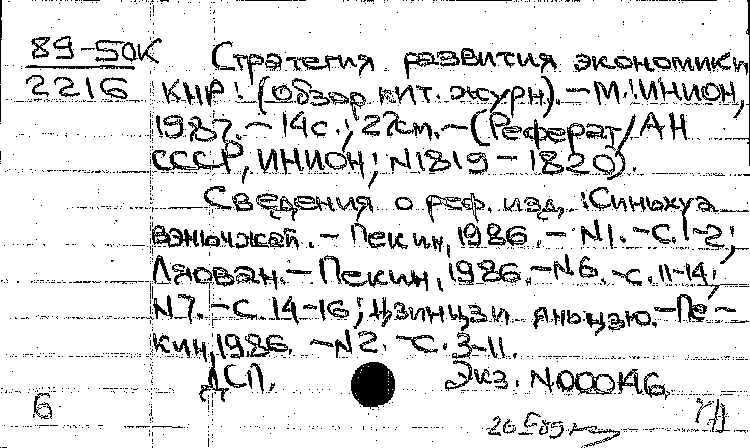 89-50К
2216
Стратегия развития экономики
КНР: (Обзор кит. журн). - М.: ИНИОН,
1987. - 14с.; 27см. - (Реферат/АН
СССР, ИНИОН; N1819-1820).
Сведения о реф. изд.: Синьхуа
вэньчжай. - Пекин, 1986. - N1. - С. 1-2;
Ляован. - Пекин, 1986. - N6. - С. 11-14;
N7. - С. 14-16; Цзинцзи яньцзю. - Пе-
кин, 1986. - N2. - С. 3-11.
ДСП. Экз. N000146.
6